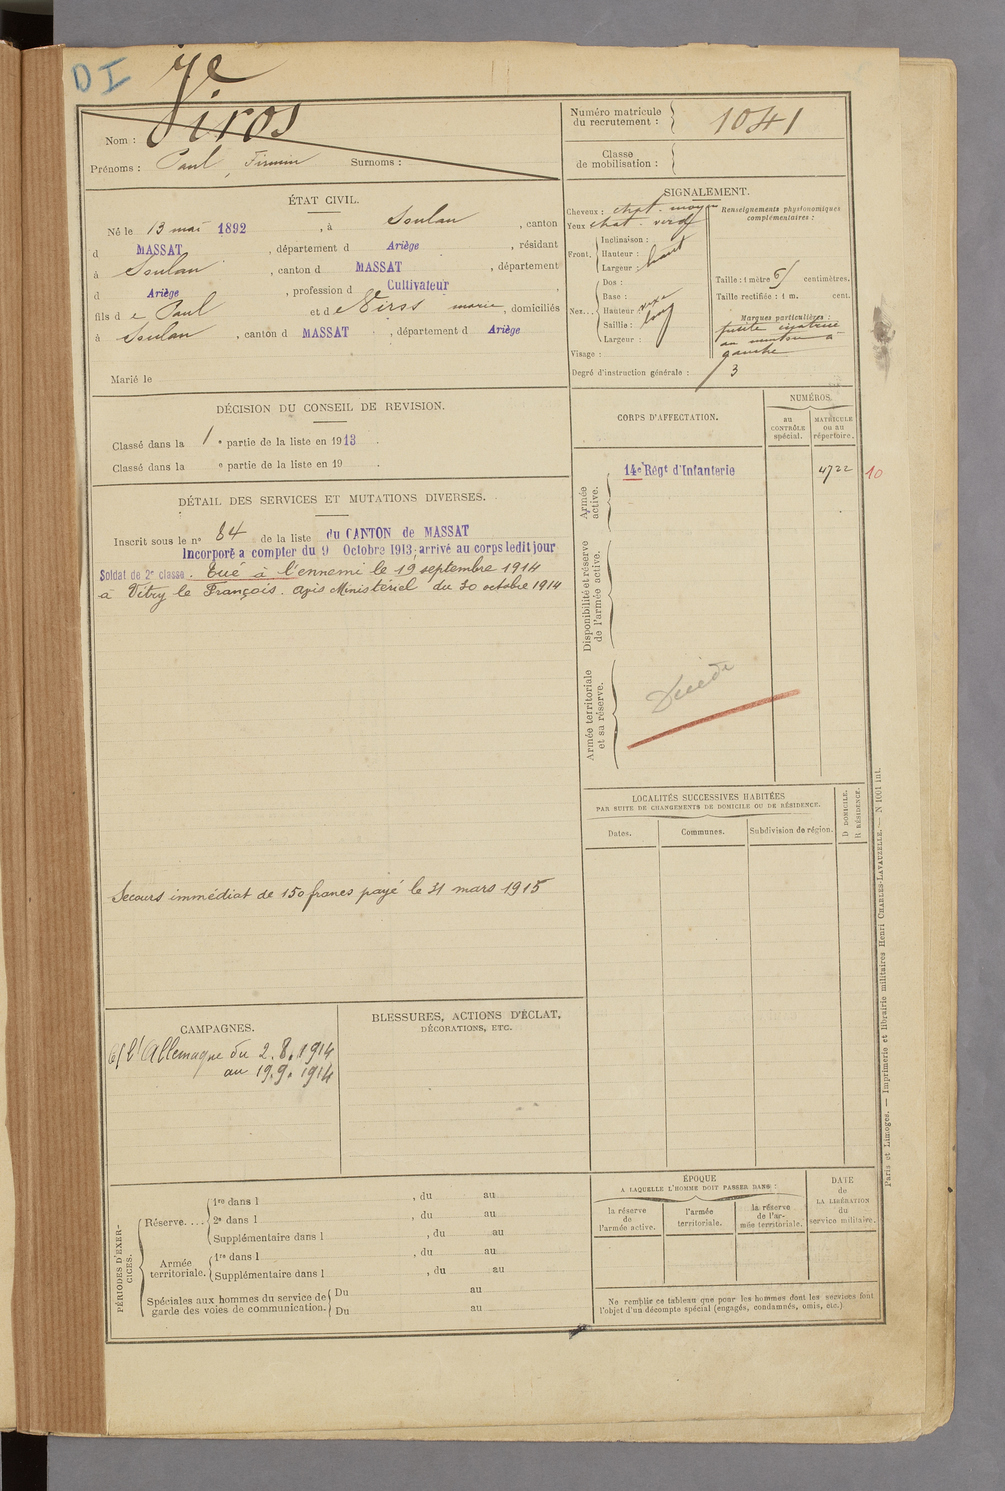 D I
Viros
Nom :
Prénoms : Paul, Firmin Surnoms :
Numéro matricule
du recrutement : 1041
Classe
de mobilisation :
ÉTAT CIVIL.
Né le 13 mai 1892, à Soulan, canton
d MASSAT, département d Ariège, résidant
à Soulan, canton d MASSAT, département
d Ariège, profession d Cultivateur,
fils de Paul et de Viros marie, domiciliés
à Soulan, canton d MASSAT, département d Ariège
Marié le
SIGNALEMENT.
Cheveux : chat. moyen
Yeux chat. verd
Front. Inclinaison :
Hauteur : haut
Largeur :
Nez... Dos :
Base :
Hauteur :
Saillie : long
Largeur :
Visage :
Degré d'instruction générale : 3
Renseignements physionomiques
complémentaires :
Taille : 1 mètre centimètres.
Taille rectifiée : 1 m. cent.
Marques particulières :
petite cicatrice
au menton à
gauche
DÉCISION DU CONSEIL DE REVISION.
Classé dans la 1e partie de la liste en 1913.
Classé dans la e partie de la liste en 19 .
DÉTAIL DES SERVICES ET MUTATIONS DIVERSES.
Inscrit sous le no 84 de la liste du CANTON de MASSAT
Incorporé a compter du 9 Octobre 1913 arrivé au corps ledit jour
Soldat de 2e classe. Tué à l'ennemi le 19 septembre 1914
à Vitry le François. avis Ministériel du 30 octobre 1914
Secours immédiat de 150 francs payé le 31 mars 1915
CORPS D'AFFECTATION.
NUMÉROS.
au
CONTRÔLE
spécial.
MATRICULE
OU AU
répertoire.
Armée
active.
14e Régt d'Infanterie 4722 10
Disponibilité et réserve
de l'armée active.
Armée territoriale
et sa réserve.
LOCALITÉS SUCCESSIVES HABITÉES
PAR SUITE DE CHANGEMENTS DE DOMICILE OU DE RÉSIDENCE.
Dates.
Communes.
Subdivision de région.
D DOMICILE.
R RÉSIDENCE.
CAMPAGNES.
l'Allemagne du 2.8.1914
au 19.9.1914
BLESSURES, ACTIONS D'ÉCLAT,
DÉCORATIONS, ETC.
PÉRIODES D'EXER-
CICES.
Réserve.... 1re dans l , du au
2e dans l , du au
Supplémentaire dans l , du au
Armée
territoriale. 1re dans l , du au
Supplémentaire dans l , du au
Spéciales aux hommes du service de
garde des voies de communication. Du au
Du au
ÉPOQUE
A LAQUELLE L'HOMME DOIT PASSER DANS :
la réserve
de
l'armée active.
l'armée
territoriale.
la réserve
de l'ar-
mée territoriale.
DATE
de
LA LIBÉRATION
du
service militaire.
Ne remplir ce tableau que pour les hommes dont les services font
l'objet d'un décompte spécial (engagés, condamnés, omis, etc.)
Paris et Limoges. — Imprimerie et librairie militaires Henri CHARLES-LAVAUZELLE. — N 1001 int.